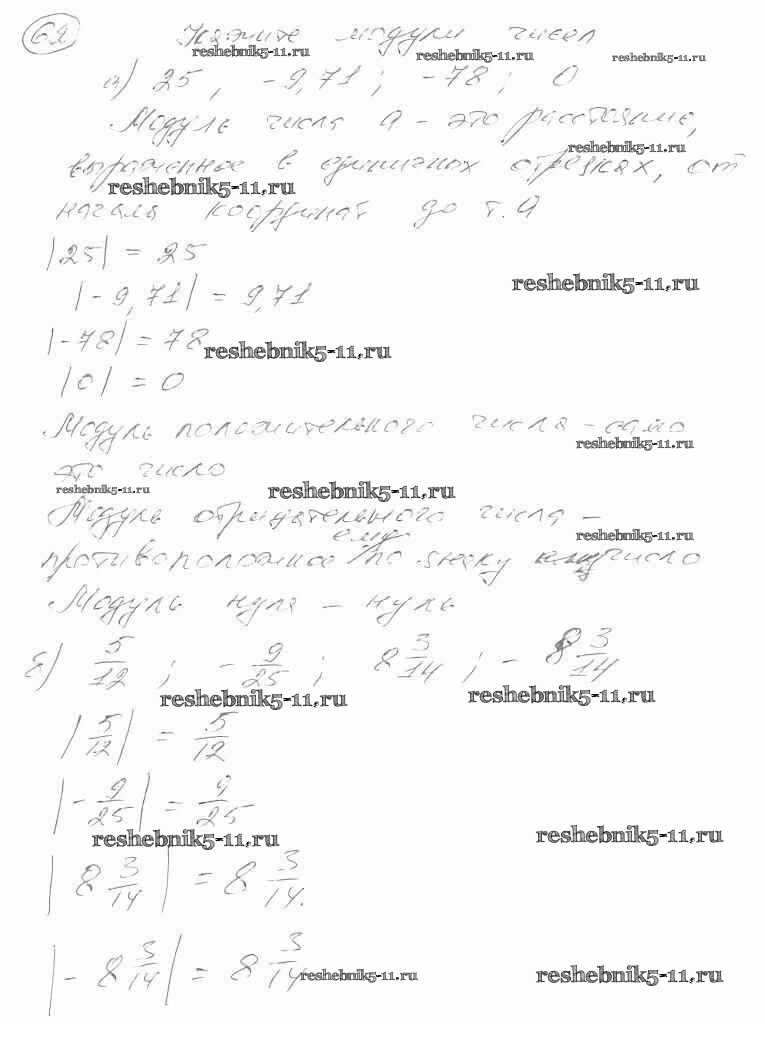 62 Укажите модули чисел
reshebnik5-11.ru reshebnik5-11.ru reshebnik5-11.ru
а) 25, -9,71; -78; 0
Модуль числа а - это расстояние,
reshebnik5-11.ru
выраженное в единичных отрезках, от
reshebnik5-11.ru
начала координат до т. а
|25| = 25
reshebnik5-11.ru
|-9,71| = 9,71
|-78| = 78
reshebnik5-11.ru
|0| = 0
Модуль положительного числа - само
reshebnik5-11.ru
это число
reshebnik5-11.ru reshebnik5-11.ru
Модуль отрицательного числа -
reshebnik5-11.ru
противоположное ему по знаку число
Модуль нуля - нуль
б) 5/12; -9/25; 8 3/14; -8 3/14
reshebnik5-11.ru reshebnik5-11.ru
|5/12| = 5/12
|-9/25| = 9/25
reshebnik5-11.ru reshebnik5-11.ru
|8 3/14| = 8 3/14.
|-8 3/14| = 8 3/14
reshebnik5-11.ru reshebnik5-11.ru